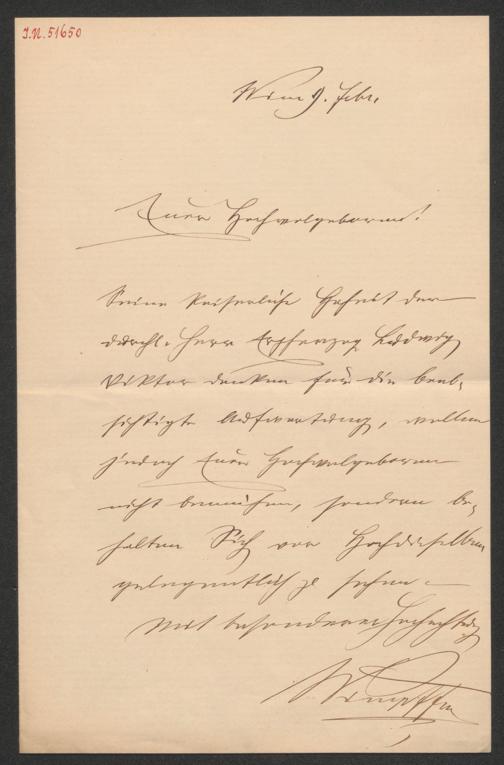 I.N. 51650
Wien 9. Febr.
Euer Hochwolgeboren!
Seine Kaiserliche Hoheit der
durchl. Herr Erzherzog Ludwig
Viktor danken für die beab-
sichtigte Aufwartung, wollen
jedoch Euer Hochwolgeboren
nicht bemühen, sondern be-
halten Sich vor Hochdieselben
gelegentlich zu sehen.
Mit besonderer Hochachtung
Wimpffen